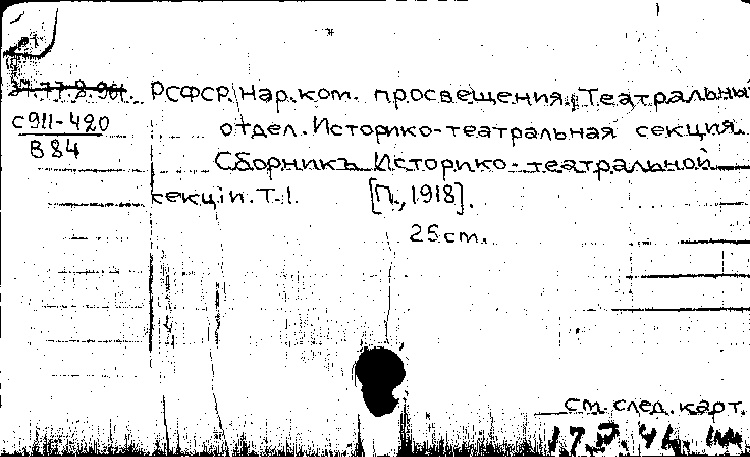 37.77.8.961. РСФСР. Нар. ком. просвещения. Театральный
С911-420 отдел. Историко-театральная секция.
В84 Сборникъ Историко-театральной
секціи. Т. 1. [П., 1918].
25 cm.
см. след. карт.